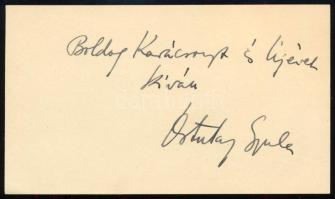 Boldog Karácsonyt és Újévet
kíván
Ortutay Gyula